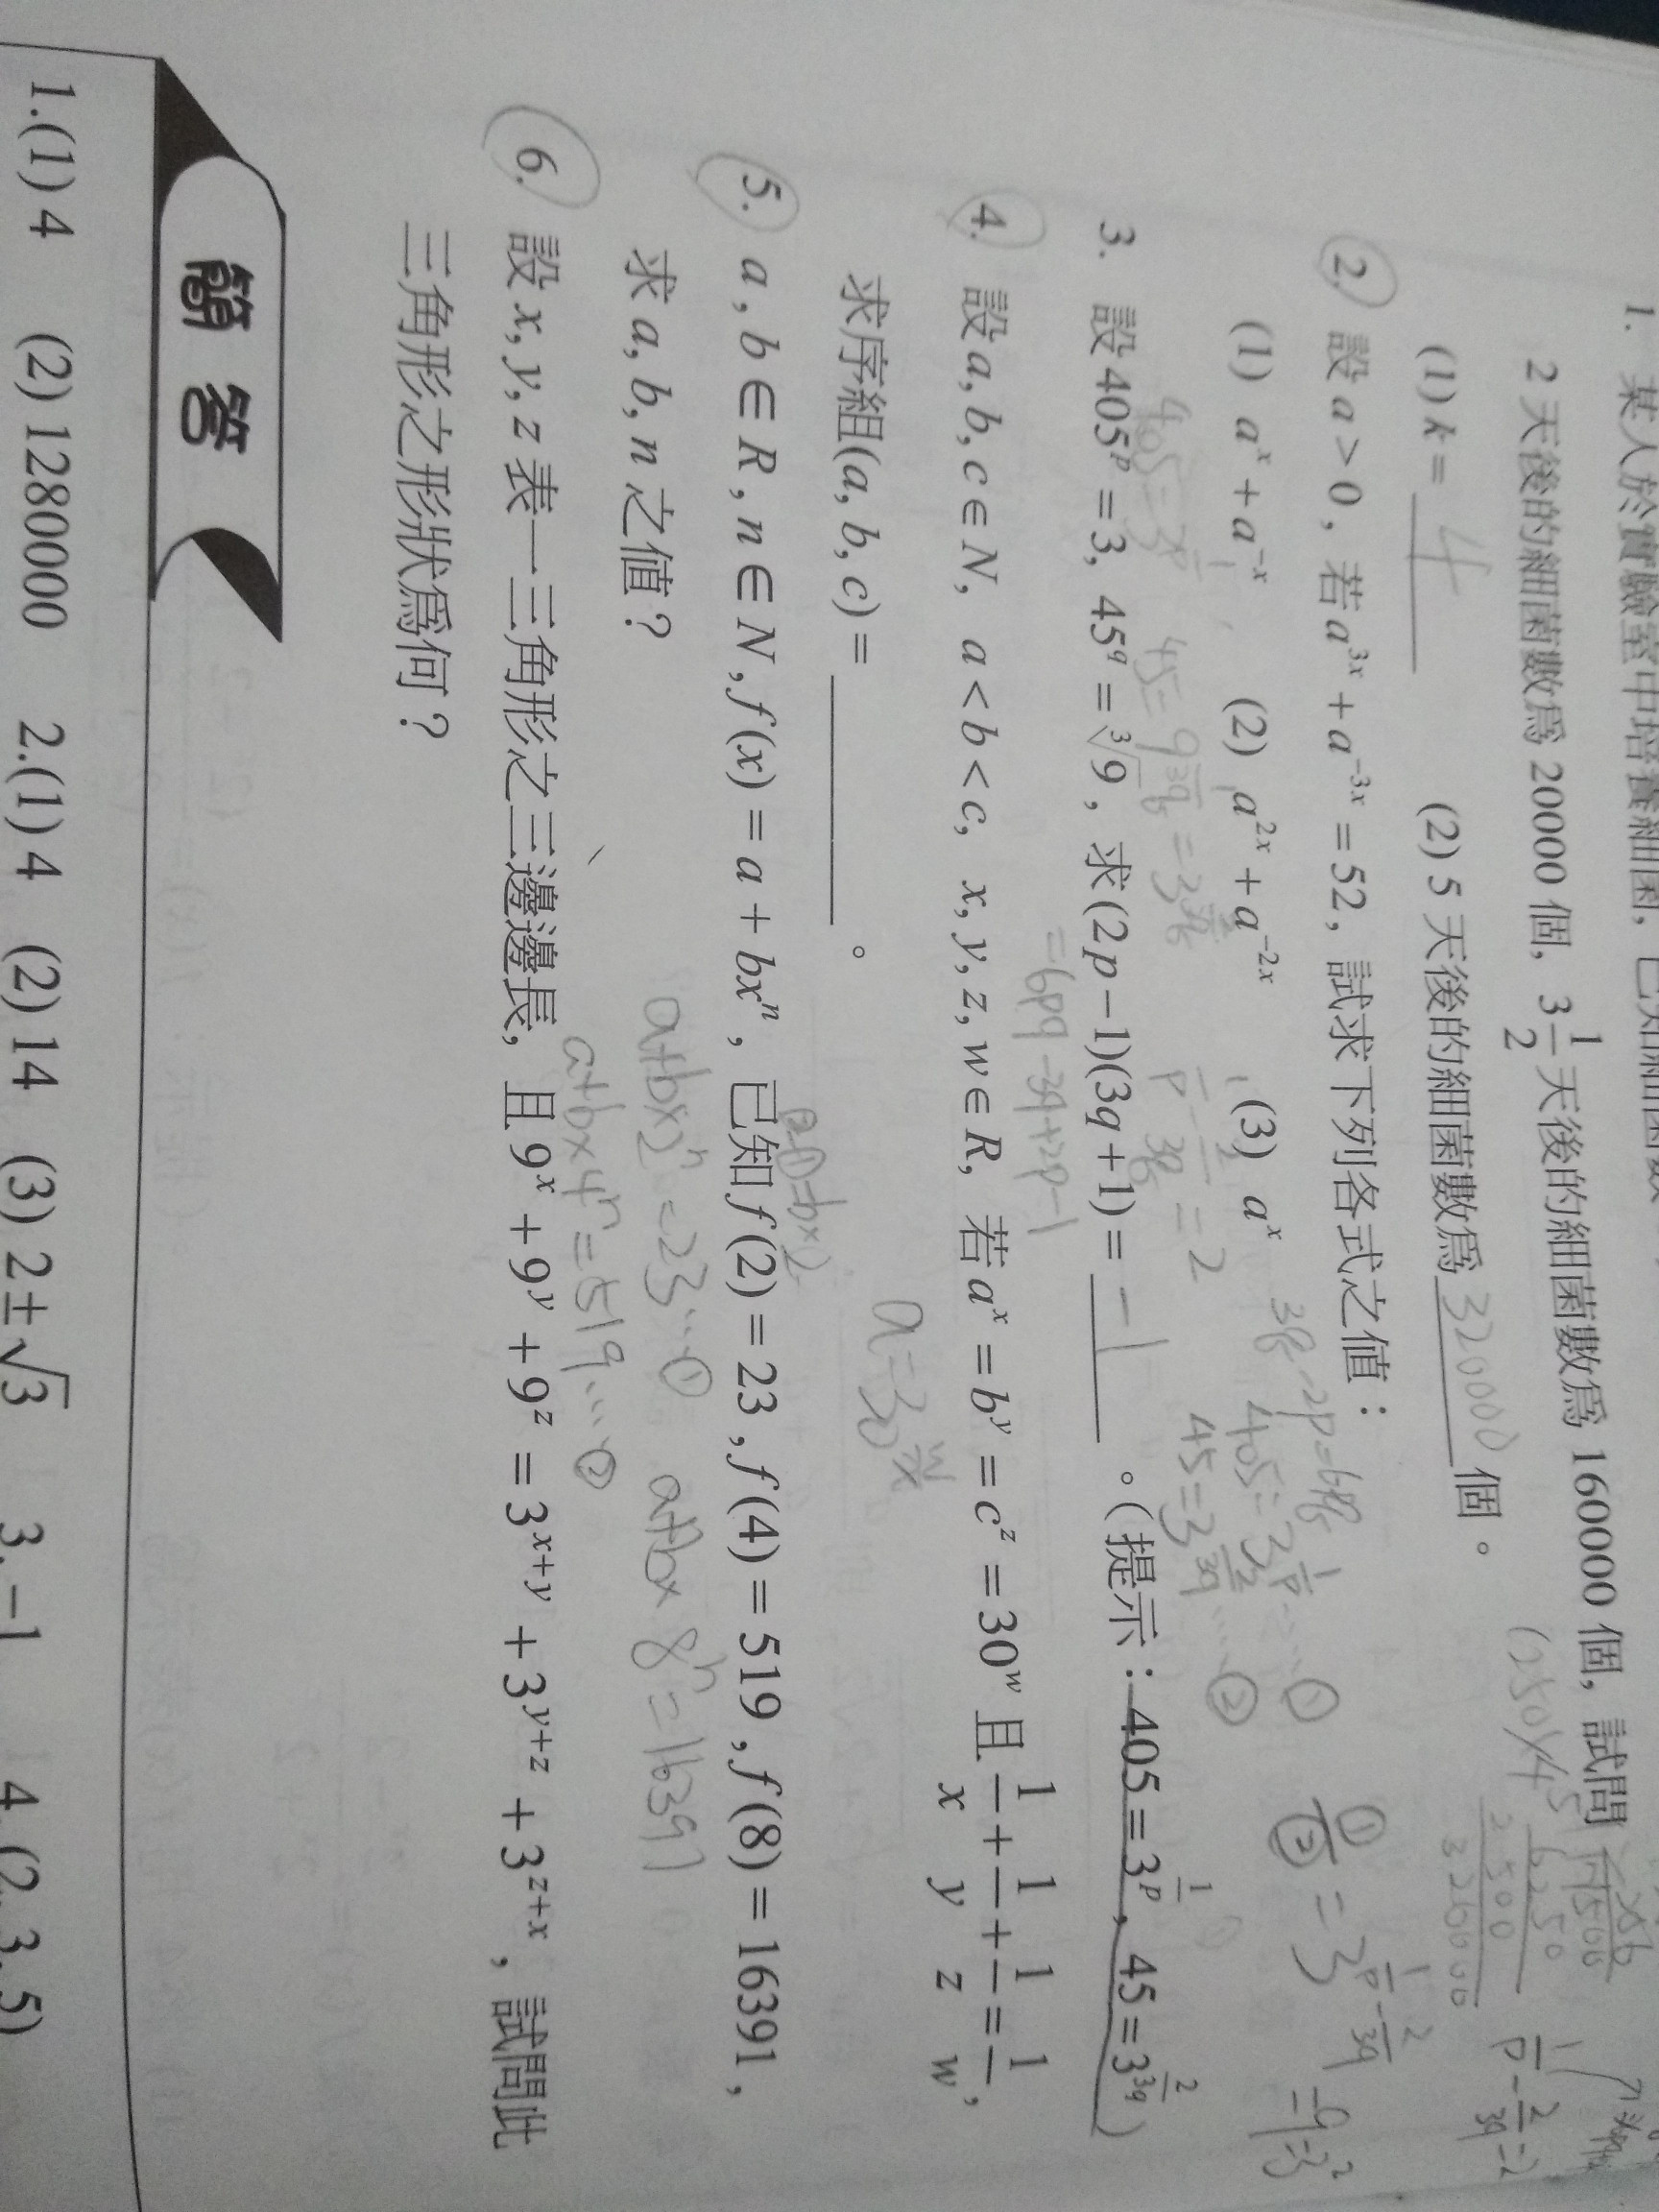 1. 某人於實驗室中培養細菌, 已知細菌數
2 天後的細菌數為 20000 個, 3 1/2 天後的細菌數為 160000 個, 試問
(1) k = 4 (2) 5 天後的細菌數為 320000 個。
2. 設 a > 0, 若 a^{3x} + a^{-3x} = 52, 試求下列各式之值：
(1) a^x + a^{-x} (2) a^{2x} + a^{-2x} (3) a^x
3. 設 405^p = 3, 45^q = ∛9, 求 (2p − 1)(3q + 1) = −1 。(提示：405 = 3^{1/p}, 45 = 3^{2/3q})
= 6pq − 3q + 2p − 1
4. 設 a, b, c ∈ N, a < b < c, x, y, z, w ∈ R, 若 a^x = b^y = c^z = 30^w 且 1/x + 1/y + 1/z = 1/w,
求序組(a, b, c) = ______ 。
a = 30^{w/x}
5. a, b ∈ R, n ∈ N, f(x) = a + bx^n, 已知 f(2) = 23, f(4) = 519, f(8) = 16391,
求 a, b, n 之值？
a+bx2^n = 23 … ① a+bx 8^n = 16391
a+bx4^n = 519 … ②
6. 設 x, y, z 表一三角形之三邊邊長, 且 9^x + 9^y + 9^z = 3^{x+y} + 3^{y+z} + 3^{z+x}, 試問此
三角形之形狀為何？
簡答
1.(1) 4 (2) 1280000 2.(1) 4 (2) 14 (3) 2 ± √3 3. −1 4. (2, 3, 5)